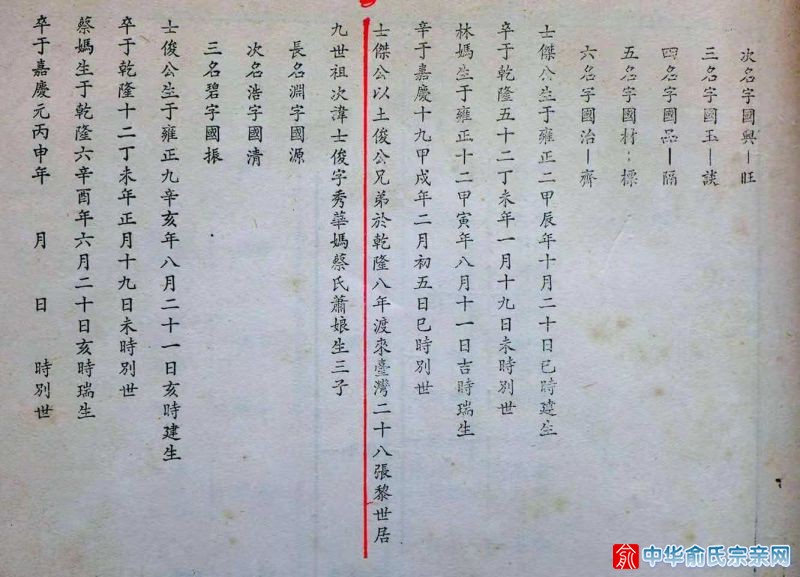 次名字國興－旺
三名字國玉－談
四名字國品－隔
五名字國材－標
六名字國治－齊
士傑公生于雍正二甲辰年十月二十日巳時建生
卒于乾隆五十二丁未年一月十九日未時別世
林媽生于雍正十二甲寅年八月十一日吉時瑞生
辛于嘉慶十九甲戌年二月初五日巳時別世
士傑公以土俊公兄弟於乾隆八年渡來臺灣二十八張黎世居
九世祖次諱士俊字秀華媽蔡氏蕭娘生三子
長名淵字國源
次名浩字國清
三名碧字國振
士俊公生于雍正九辛亥年八月二十一日亥時建生
卒于乾隆十二丁未年正月十九日未時別世
蔡媽生于乾隆六辛酉年六月二十日亥時瑞生
卒于嘉慶元丙申年 月 日 時別世
俞 中华俞氏宗亲网